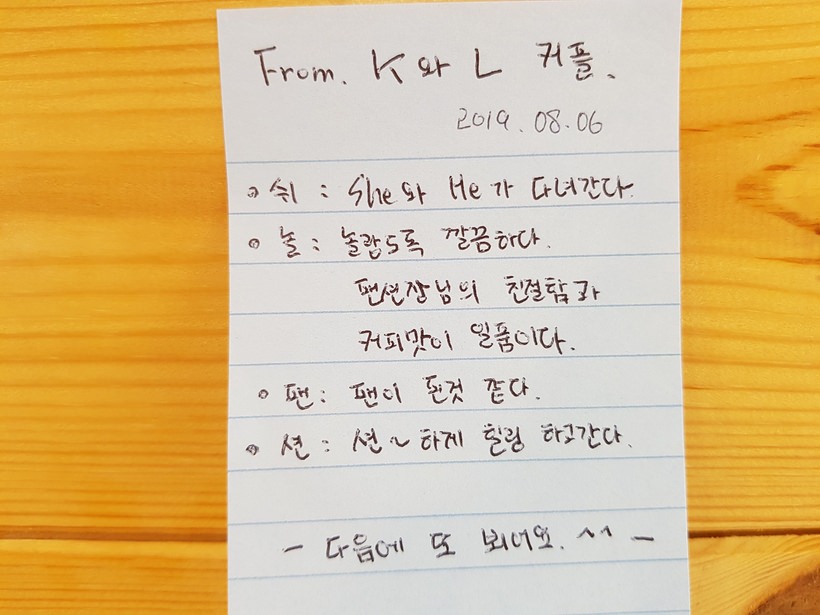 From. K와 L 커플.
2019.08.06
쉬 : She와 He가 다녀간다.
놀 : 놀랍도록 깔끔하다.
팬션장님의 친절함과
커피맛이 일품이다.
팬 : 팬이 된것 같다.
션 : 션~하게 힐링 하고간다.
- 다음에 또 뵈어요. ^^ -